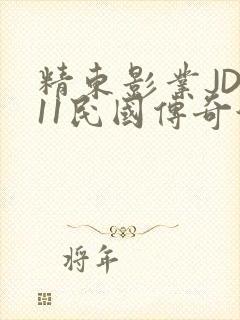 精東影業JD
11民國傳奇
將年